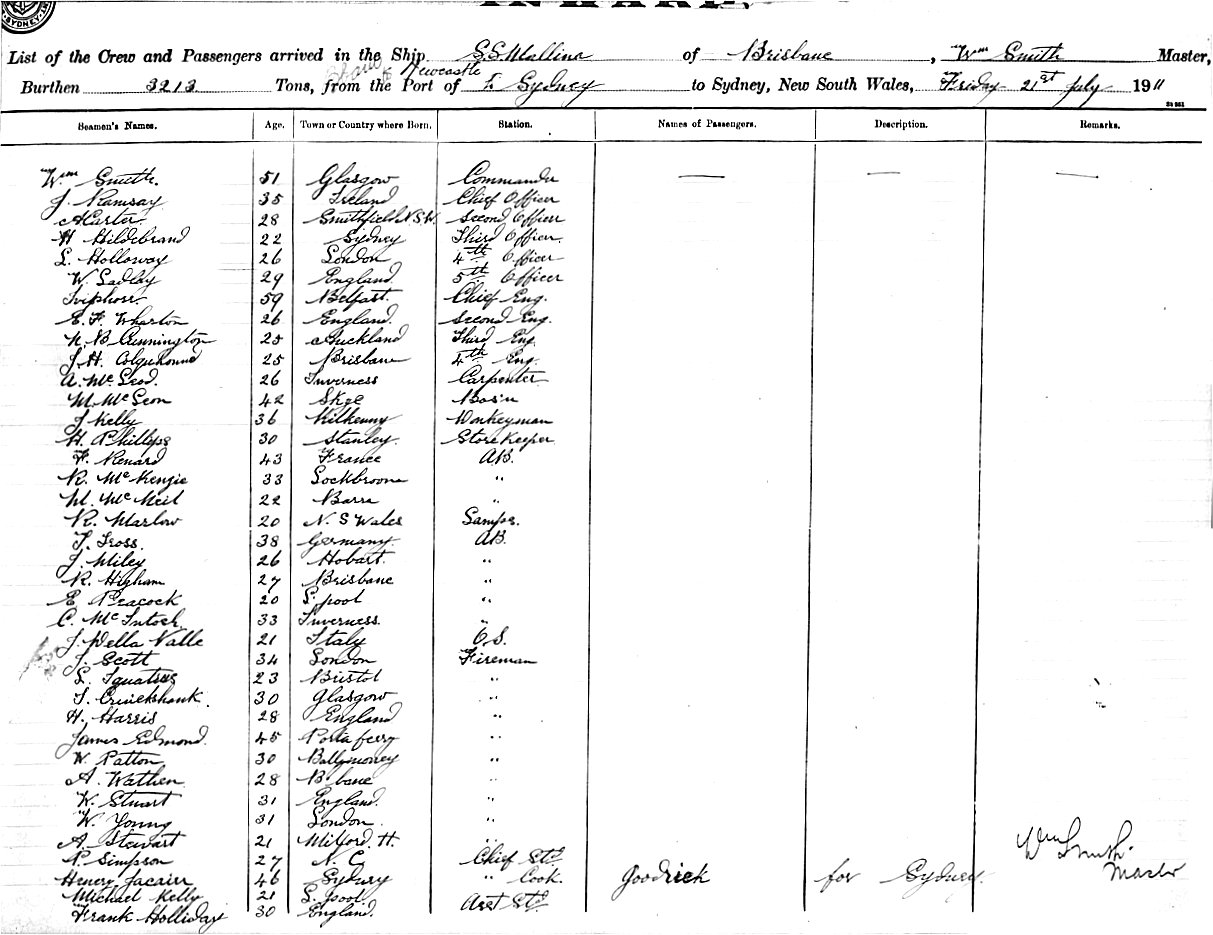 SYDNEY
INWARD.
List of the Crew and Passengers arrived in the Ship S.S. Mallina of Brisbane, Wm Smith Master,
Burthen 3213 Tons, from the Port of Newcastle & Sydney to Sydney, New South Wales, Friday 21st July 1911
Seamen's Names. Age. Town or Country where Born. Station. Names of Passengers. Description. Remarks.
Wm Smith. 51 Glasgow Commander — — —
J. Ramsay 35 Ireland Chief Officer
A Carter. 28 Smithfield N.S.W. Second Officer
H Hildebrand 22 Sydney Third Officer.
L. Holloway 26 London 4th Officer
W. Sadley 29 England. 5th Officer
59 Belfast. Chief Eng.
E. F. Wharton 26 England. Second Eng.
N. B Cunnington 25 Auckland Third Eng.
J. H. Colquhoune 25 Brisbane 4th Eng.
A. McLeod. 26 Inverness Carpenter
M. McLeon 42 Skye Bos'n
J Kelly 36 Kilkenny Donkeyman
H. Phillips 30 Stanley. StoreKeeper
F. Renard 43 France AB.
R. McKenzie 33 Lockbroone "
M. McNeil 22 Barra "
R. Marlow 20 N. S Wales Lamps.
T. Gross. 38 Germany. AB.
J. Miley 26 Hobart. "
R. Higham 27 Brisbane "
E. Peacock 20 L.pool "
C. McIntosh. 33 Inverness. "
J. Della Valle 21 Italy O.S.
J. Scott 34 London Fireman
L. Ignatius 23 Bristol "
T. Cruickshank. 30 Glasgow "
H. Harris 28 England "
James Edmond. 45 Portaferry "
W. Patton 30 Ballymoney "
A. Wathen 28 B'bane "
W. Stuart 31 England. "
W. Young 31 London. "
A. Stewart 21 Milford. H. "
P. Simpson 27 N. C. Chief Std.
Wm Smith.
Master
Henry Jacairr 46 Sydney " Cook. Goodrick for Sydney.
Michael Kelly 21 L. pool Asst Std.
Frank Holliday 30 England.